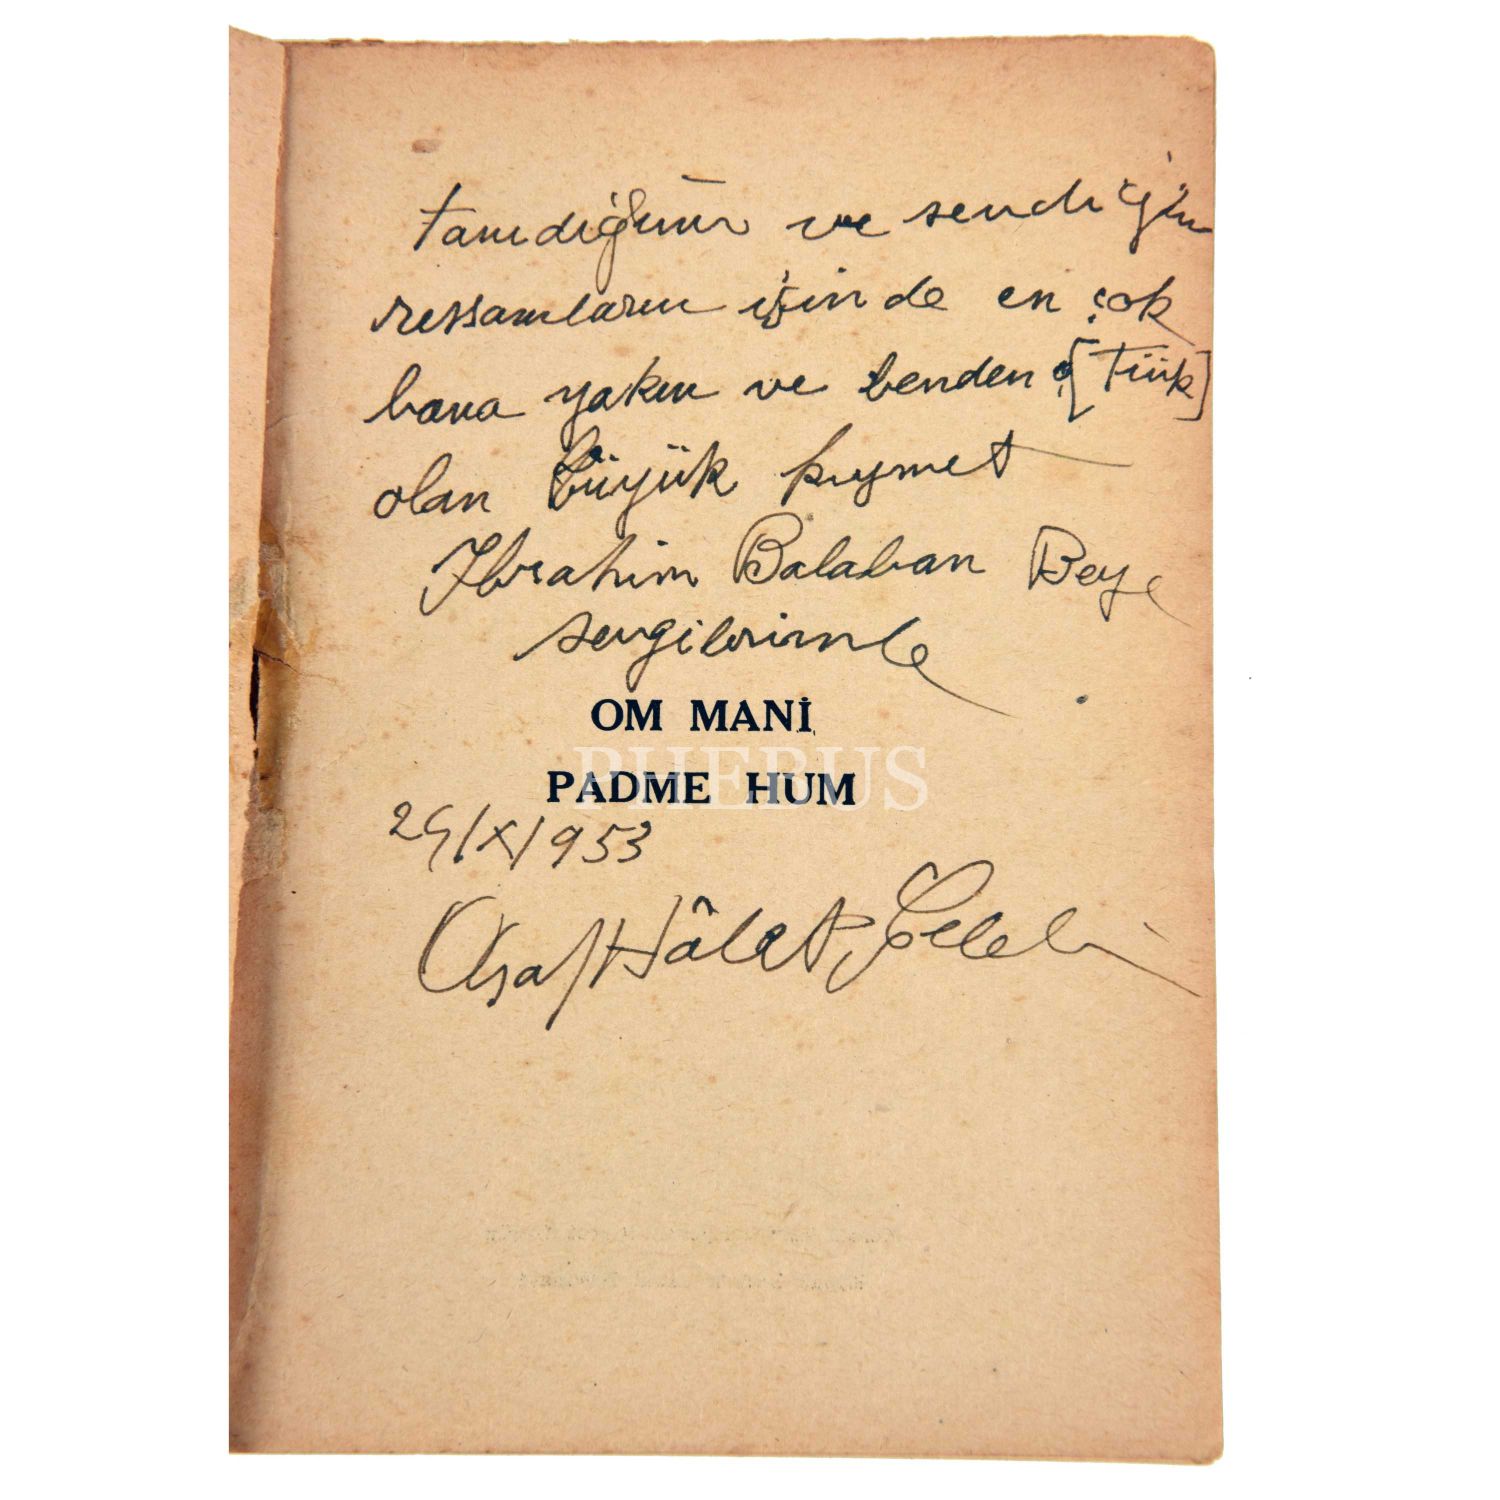 tanıdığım ve sevdiğim
ressamların içinde en çok
bana yakın ve benden [Türk]
olan büyük kıymet
İbrahim Balaban Beye
sevgilerimle
OM MANİ
PADME HUM
PHEBUS
/X/1953
Asaf Hâlet Çelebi